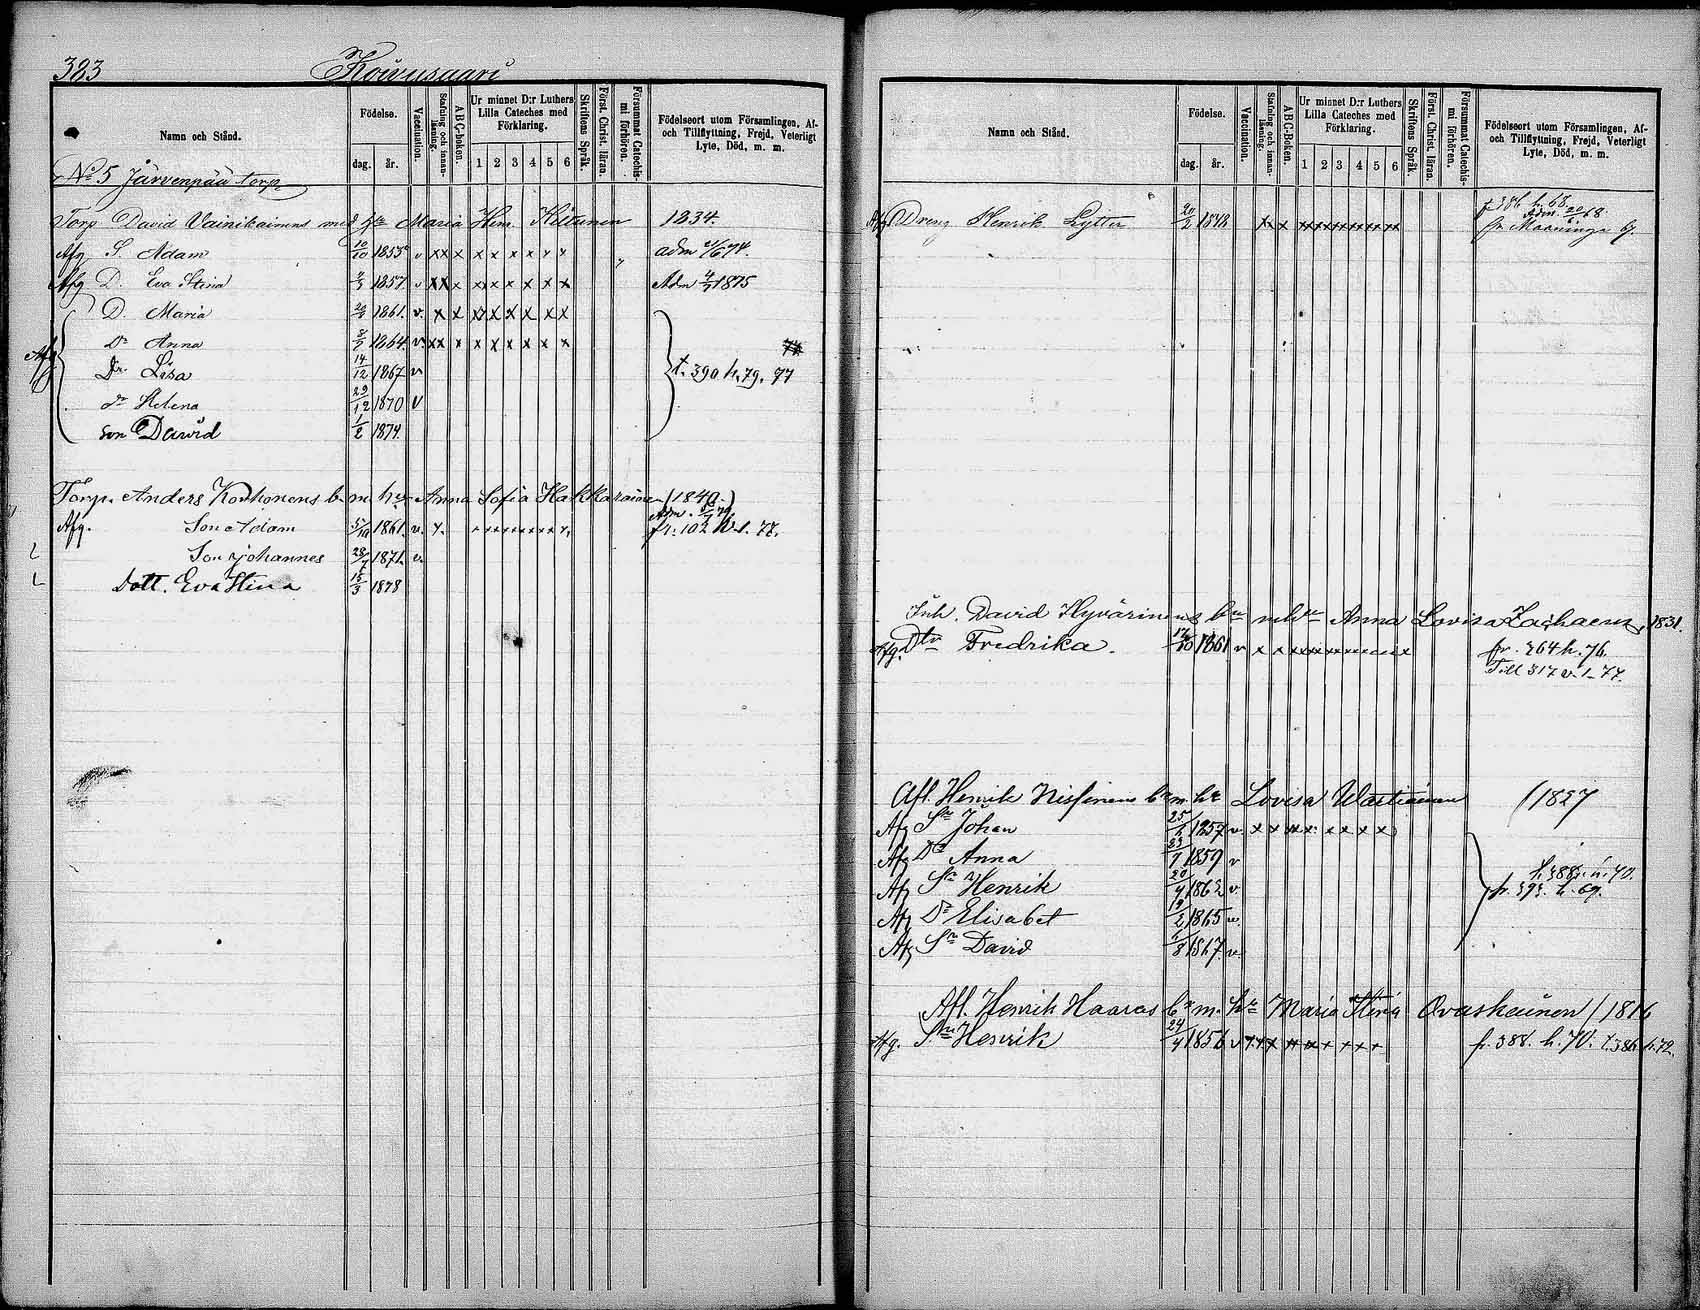 383 Koivusaari
Namn och Stånd.
Födelse.
dag. år.
Vaccination.
Stafning och innan-läsning.
ABC-boken.
Ur minnet D:r Luthers Lilla Cateches med Förklaring.
1 2 3 4 5 6
Skriftens Språk.
Först. Christ. läran.
Försummat Catechis-mi förhören.
Födelseort utom Församlingen, Af- och Tillflyttning, Frejd, Veterligt Lyte, Död, m. m.
No 5 Järvenpää torp
Torp David Vainikainens med hu Maria Hem. Kiltunen 1834.
Afg S. Adam 10/10 1855 v x x x x x x x x x adm 21/6 74.
Afg D. Eva Stina 1857 v x x x x x x x x x Adm 4/7 1875
D. Maria 1861. v. x x x x x x x x
Afg
Dr Anna 1864. v. x x x x x x x x x
Dr. Lisa 14/12 1867 v t. 390 h. 79. 77
dr Helena 29/12 1870 v
son David 1/2 1874.
Torp. Anders Korhonens b. m hu Anna Sofia Hakkarainen (1840.)
Afg. Son Adam 5/10 1861. v. x. x x x x x x x x fr. 102 h. 1. 77.
Son Johannes 28/7 1871. v.
Dott. Eva Stina 15/3 1878
Namn och Stånd.
Födelse.
dag. år.
Vaccination.
Stafning och innan-läsning.
ABC-Boken.
Ur minnet D:r Luthers Lilla Cateches med Förklaring.
1 2 3 4 5 6
Skriftens Språk.
Först. Christ. läran.
Försummat Catechis-mi förhören.
Födelseort utom Församlingen, Af- och Tillflyttning, Frejd, Veterligt Lyte, Död, m. m.
f 386 h. 68.
Afg Dreng Henrik Lytter 20/2 1848 x x x x x x x x x x x Adm. 68.
fr Maaninga 67.
Inh. David Hyvärinens bn m hu Anna Lovisa Zachaeus, 1831.
Afg. Dtr Fredrika. 1861 v x x x x x x x x x x fr. 364 h. 76.
Till 317 v. 1. 77.
Afl. Henrik Nissinens bn m. hu Lovisa Wartiainen (1827
Afg Sn Johan 25/6 1857 v. x x x x x x x x
Afg Dr Anna 23/7 1859 v
Afg Sn Henrik 20/4 1862 v. fr. 393. h. 69.
Afg Dr Elisabet 19/2 1865 v.
Afg Sn David 6/8 1867. v.
Afl. Henrik Haaras bn m. hu Maria Stina Ovaskainen (1816
Afg. Sn Henrik 24/4 1856 v x x x x x x x x x fr. 388. h. 70. t. 386 h. 72.